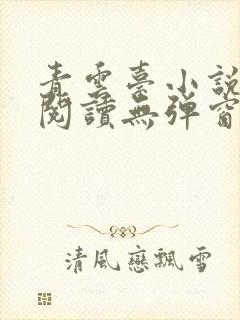 青雲臺小說
閱讀無彈窗
清風戀飄雪